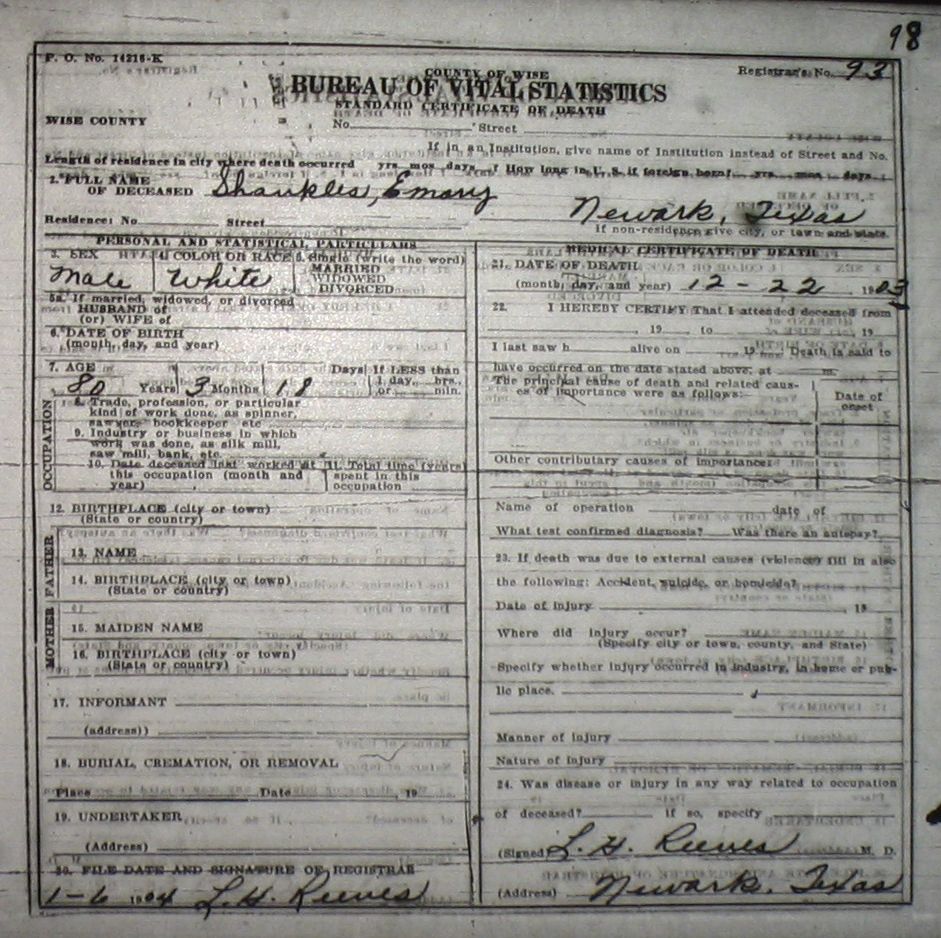 98
F. O. No. 14216-K
COUNTY OF WISE
Registrar's No. 93
BUREAU OF VITAL STATISTICS
STANDARD CERTIFICATE OF DEATH
WISE COUNTY
No. Street
If in an Institution, give name of Institution instead of Street and No.
Length of residence in city where death occurred yrs mos days / How long in U. S. if foreign born? yrs mos days
2. FULL NAME
OF DECEASED Shankles, Emory
Newark, Texas
Residence: No. Street
If non-residence give city, or town and state
PERSONAL AND STATISTICAL PARTICULARS
3. SEX 4. COLOR OR RACE 5. Single (write the word)
MARRIED
WIDOWED
DIVORCED
Male White
5a. If married, widowed, or divorced
HUSBAND of
(or) WIFE of
6. DATE OF BIRTH
(month, day, and year)
7. AGE
80 Years 3 Months 18 Days If LESS than
1 day, hrs.
or min.
OCCUPATION
8. Trade, profession, or particular
kind of work done, as spinner,
sawyer, bookkeeper etc
9. Industry or business in which
work was done, as silk mill,
saw mill, bank, etc.
10. Date deceased last worked at
this occupation (month and
year)
11. Total time (years)
spent in this
occupation
12. BIRTHPLACE (city or town)
(State or country)
FATHER
13. NAME
14. BIRTHPLACE (city or town)
(State or country)
MOTHER
15. MAIDEN NAME
16. BIRTHPLACE (city or town)
(State or country)
17. INFORMANT
(address))
18. BURIAL, CREMATION, OR REMOVAL
Place Date 19
19. UNDERTAKER
(Address)
20. FILE DATE AND SIGNATURE OF REGISTRAR
1-6 1904 L. H. Reeves
MEDICAL CERTIFICATE OF DEATH
21. DATE OF DEATH
(month, day, and year) 12-22 1903
22. I HEREBY CERTIFY That I attended deceased from
, 19 , to 19
I last saw h alive on 19 Death is said to
have occurred on the date stated above, at m.
The principal cause of death and related caus-
es of importance were as follows:
Date of
onset
Other contributory causes of importance:
Name of operation date of
What test confirmed diagnosis? Was there an autopsy?
23. If death was due to external causes (violence) fill in also
the following: Accident, suicide, or homicide?
Date of injury 19
Where did injury occur?
(Specify city or town, county, and State)
Specify whether injury occurred in industry, in home or pub-
lic place.
Manner of injury
Nature of injury
24. Was disease or injury in any way related to occupation
of deceased? If so, specify
(Signed) L. H. Reeves M. D.
(Address) Newark, Texas